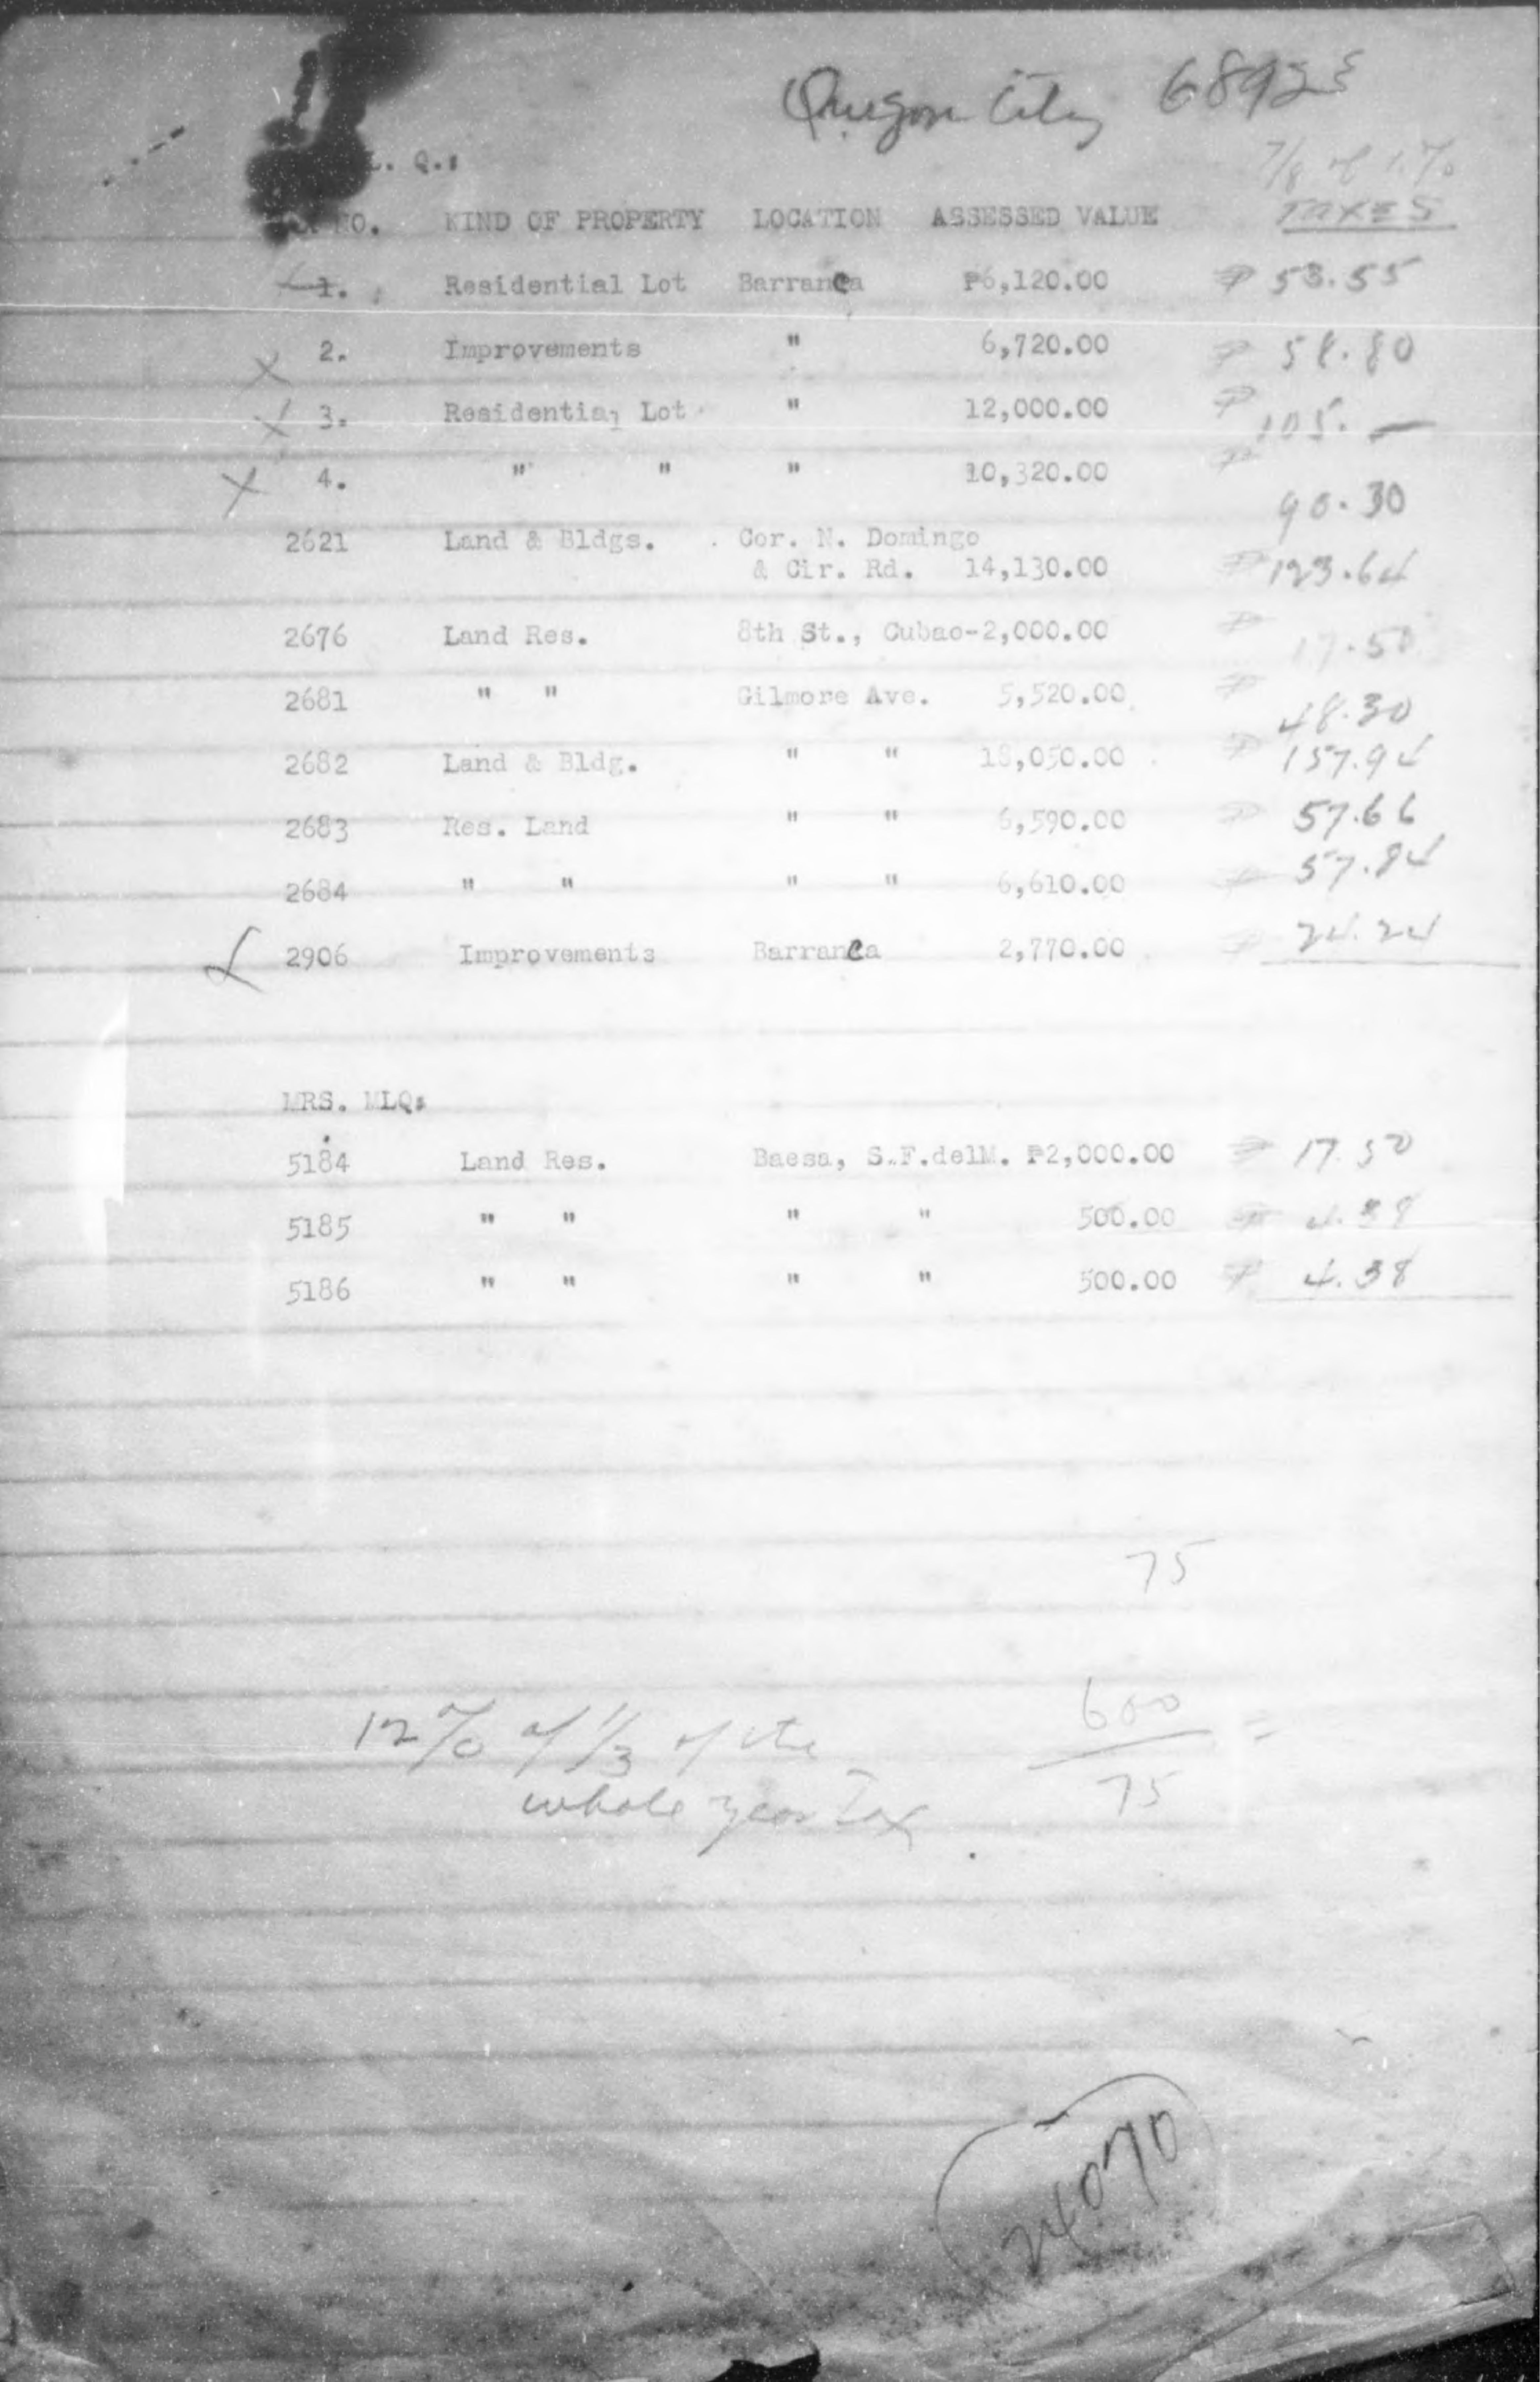 City 6892
L. Q.:
7/8 of 1 %
NO. KIND OF PROPERTY LOCATION ASSESSED VALUE TAXES
1. Residential Lot Barranca ₱6,120.00 ₱ 53.55
X 2. Improvements " 6,720.00 ₱ 58.80
X 3. Residential Lot " 12,000.00 ₱ 105. —
X 4. " " " 10,320.00 ₱ 90.30
2621 Land & Bldgs. Cor. N. Domingo
& Cir. Rd. 14,130.00 ₱ 123.64
2676 Land Res. 8th St., Cubao-2,000.00 ₱ 17.50
2681 " " Gilmore Ave. 5,520.00 ₱ 48.30
2682 Land & Bldg. " " 18,050.00 ₱ 157.94
2683 Res. Land " " 6,590.00 ₱ 57.66
2684 " " " " 6,610.00 ₱ 57.84
2906 Improvements Barranca 2,770.00 ₱ 24.24
MRS. MLQ:
5184 Land Res. Baesa, S.F.delM. ₱2,000.00 ₱ 17.50
5185 " " " " 500.00 ₱ 4.38
5186 " " " " 500.00 ₱ 4.38
75
12% of 1/3 of the
whole year Tax
600
75 =
24070